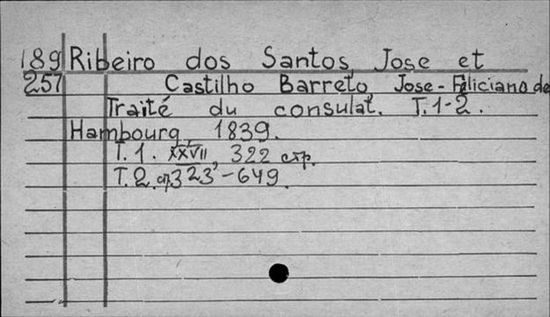 189 Ribeiro dos Santos, Jose et
257 Castilho Barreto, Jose-Feliciano de
Traité du consulat. T.1-2.
Hambourg, 1839.
T.1. XXVII, 322 стр.
T.2. ср. 323-649.